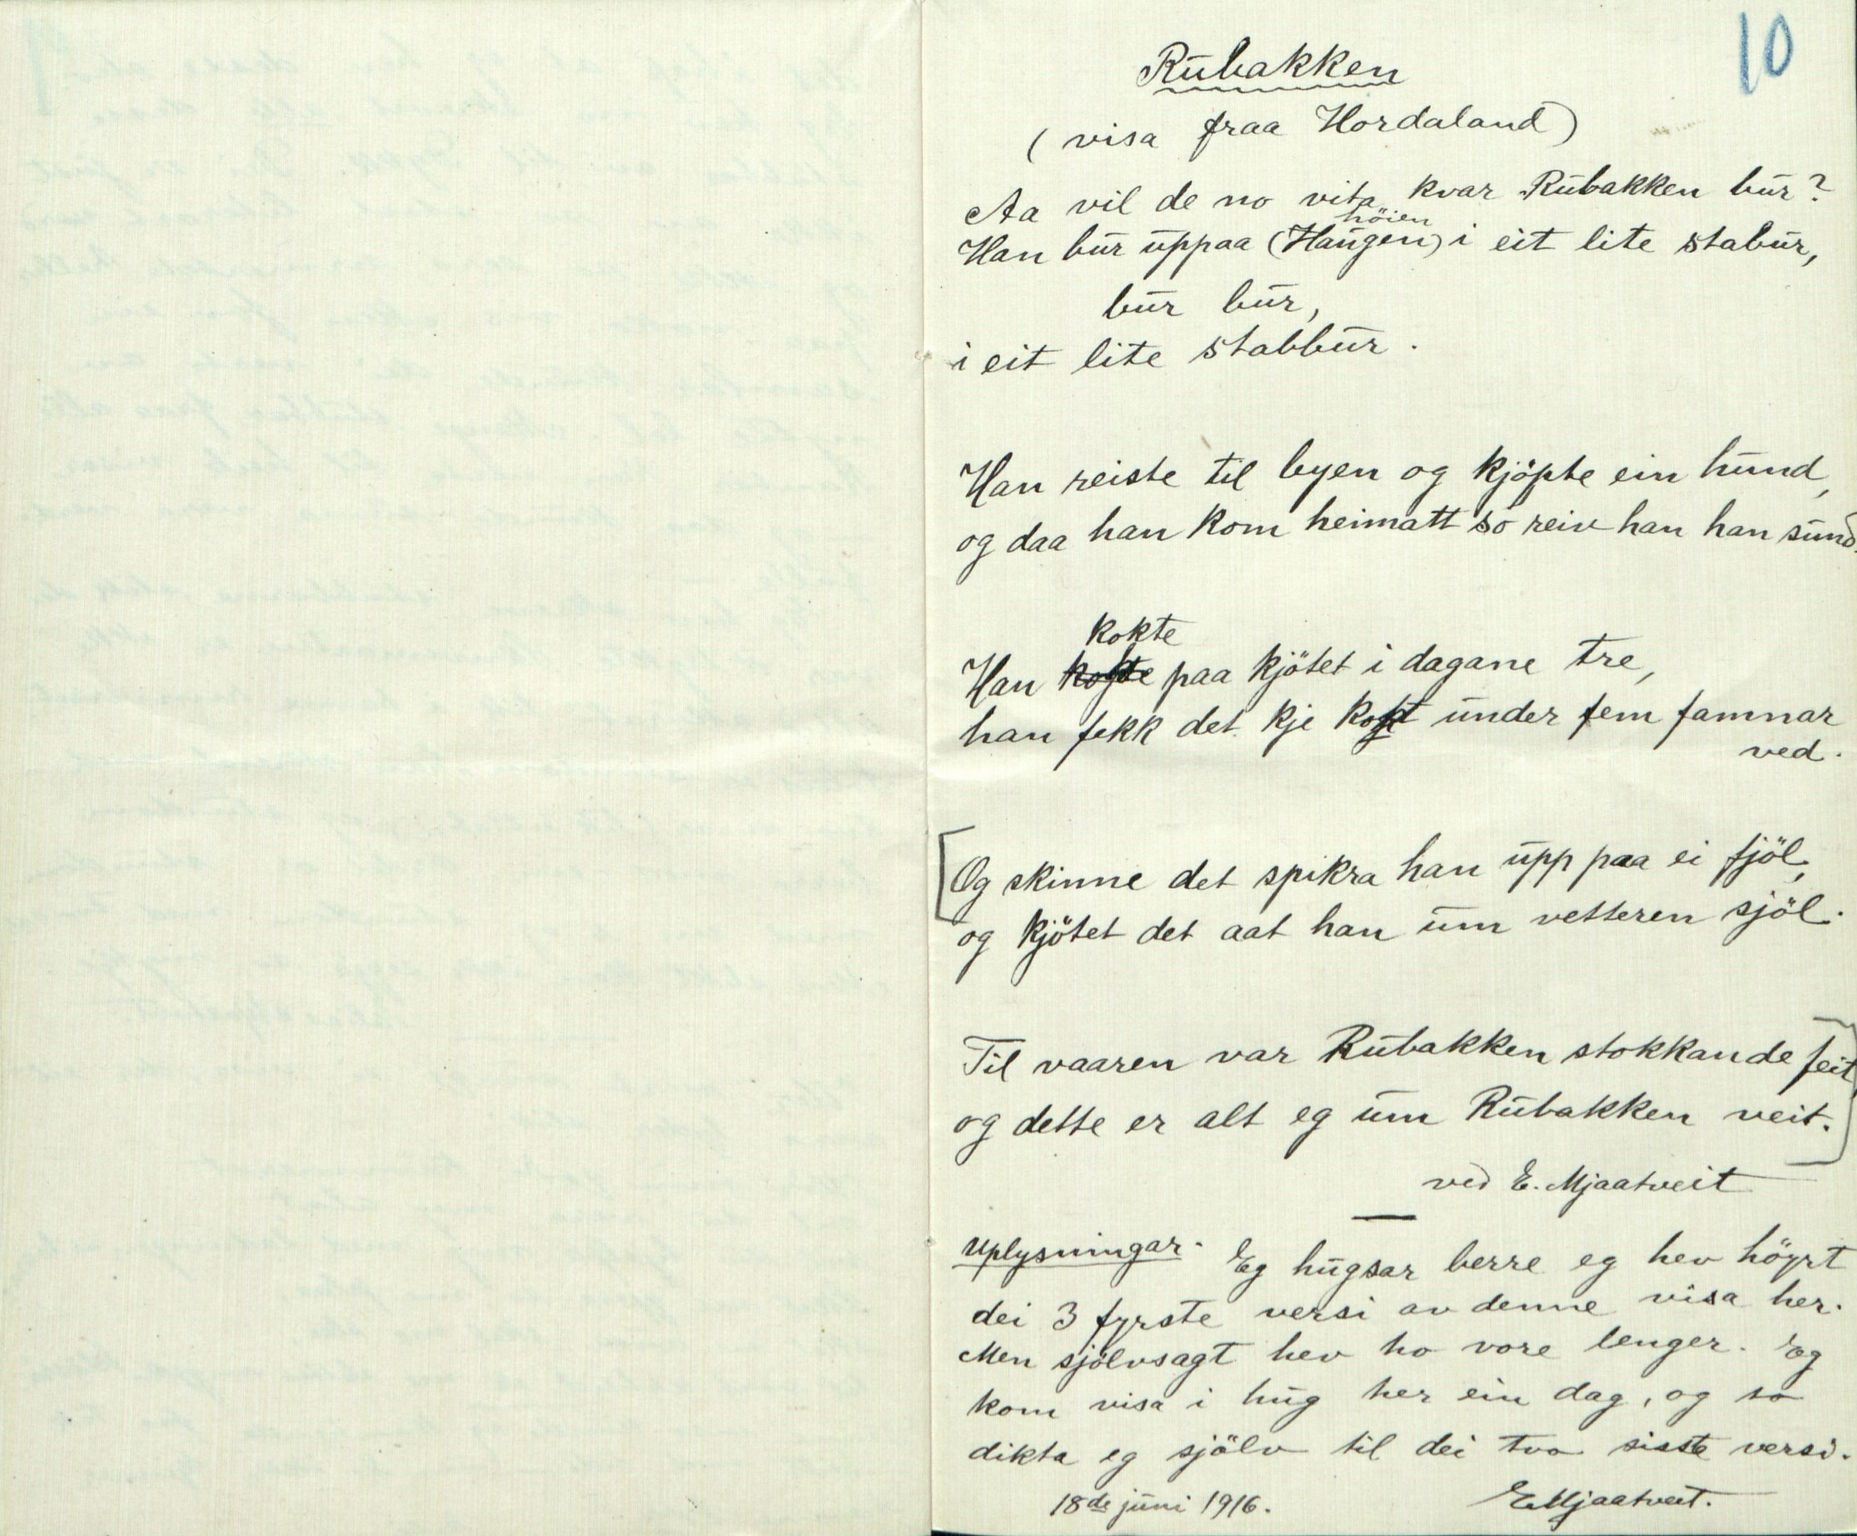 10
Rubakken
(visa fraa Hordaland)
Aa vil de no vita kvar Rubakken bur?
höien
Han bur uppaa (Haugen) i eit lite stabur,
bur bur,
i eit lite stabbur.
Han reiste til byen og kjöpte ein hund,
og daa han kom heimatt so reiv han han sund.
kokte
Han paa kjötet i dagane tre,
han fekk det kje kokt under fem famnar
ved.
[Og skinne det spikra han upp paa ei fjöl,
og kjötet det aat han um vetteren sjöl.
Til vaaren var Rubakken stokkande feit,
og dette er alt eg um Rubakken veit.]
ved E. Mjaatveit
Uplysningar. Eg hugsar berre eg hev höyrt
dei 3 fyrste versi av denne visa her.
Men sjölvsagt hev ho vore lenger. Eg
kom visa i hug her ein dag, og so
dikta eg sjölv til dei tvo siste versi.
18de juni 1916. E Mjaatveit.